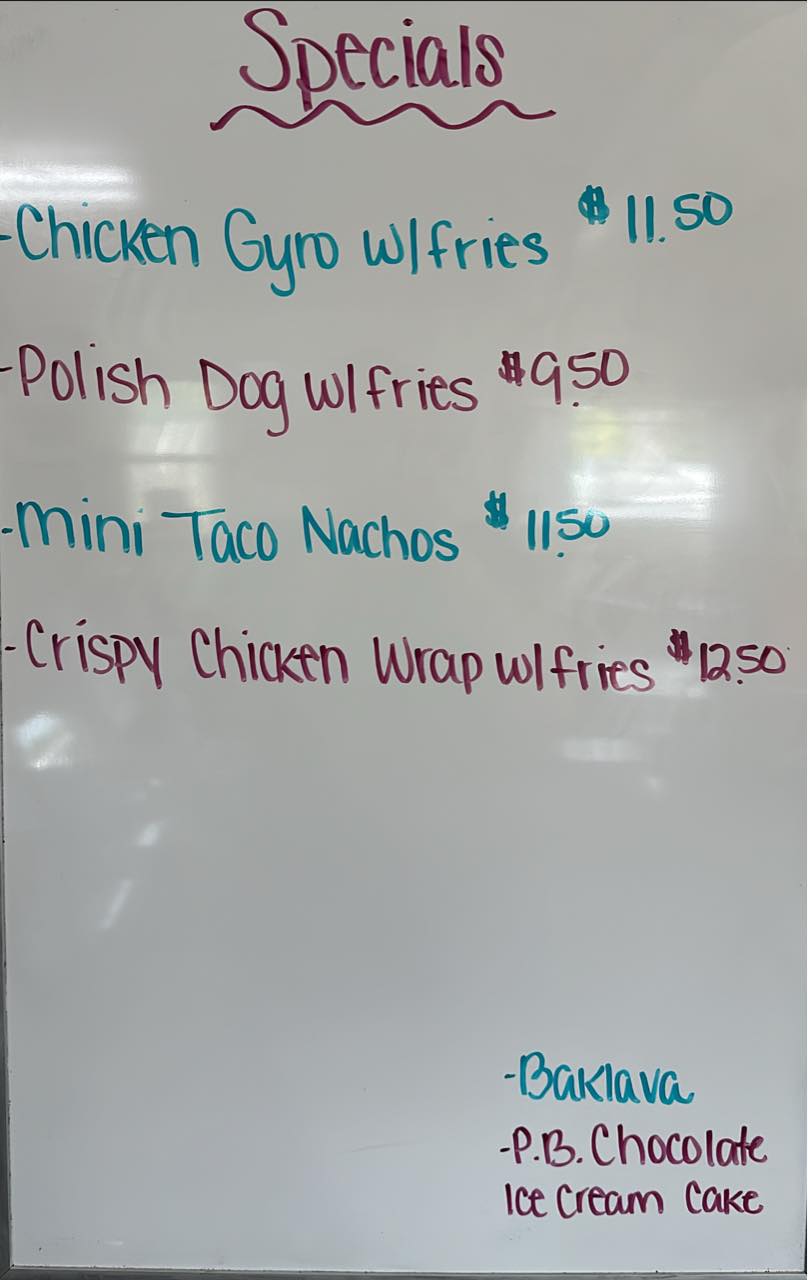 Specials
-Chicken Gyro w/fries $11.50
-Polish Dog w/fries $9.50
-mini Taco Nachos $11.50
-Crispy Chicken Wrap w/fries $12.50
-Baklava
-P.B. Chocolate
Ice Cream Cake